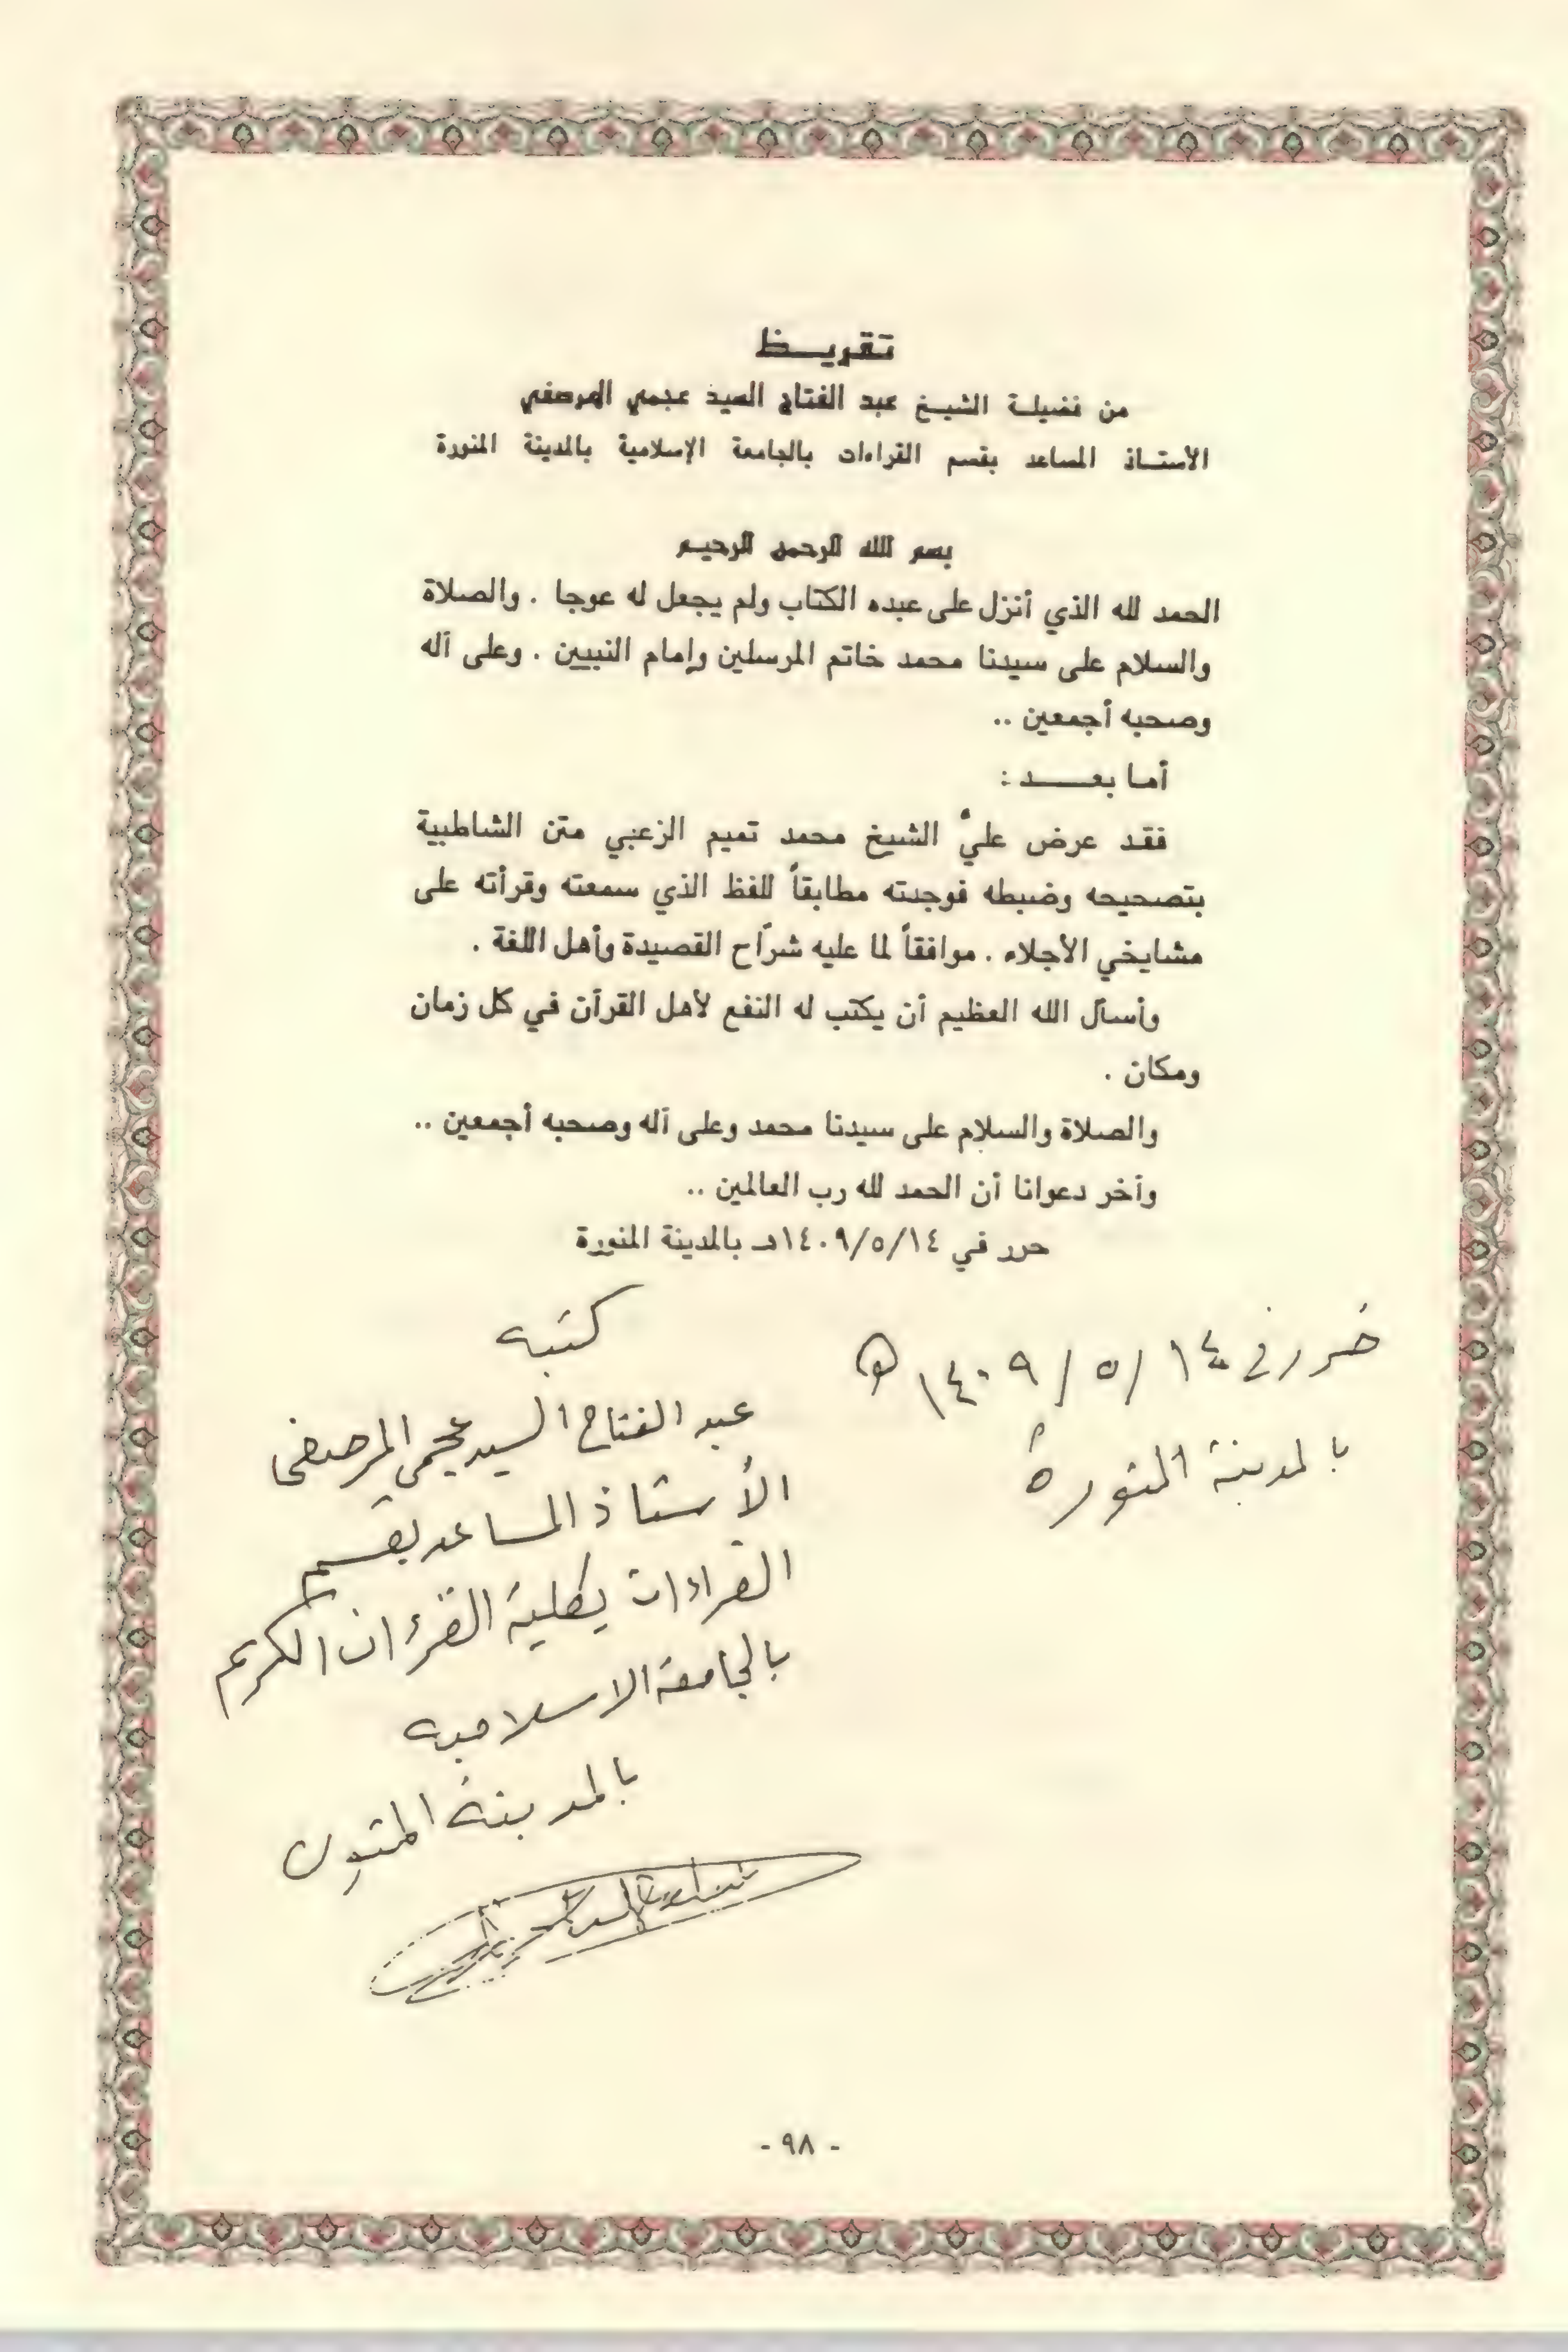 تقريـــظ
من فضيلة الشيخ عبد الفتاح السيد عجمي المرصفي
الأستاذ المساعد بقسم القراءات بالجامعة الإسلامية بالمدينة المنورة
بسم الله الرحمن الرحيم
الحمد لله الذي أنزل على عبده الكتاب ولم يجعل له عوجا . والصلاة
والسلام على سيدنا محمد خاتم المرسلين وإمام النبيين . وعلى آله
وصحبه أجمعين ..
أما بعـــد :
فقد عرض عليَّ الشيخ محمد تميم الزعبي متن الشاطبية
بتصحيحه وضبطه فوجدته مطابقاً للفظ الذي سمعته وقرأته على
مشايخي الأجلاء . موافقاً لما عليه شرّاح القصيدة وأهل اللغة .
وأسأل الله العظيم أن يكتب له النفع لأهل القرآن في كل زمان
ومكان .
والصلاة والسلام على سيدنا محمد وعلى آله وصحبه أجمعين ..
وآخر دعوانا أن الحمد لله رب العالمين ..
حرر في ١٤٠٩/٥/١٤هـ بالمدينة المنورة
حرر في ١٤/٥/١٤٠٩ هـ
بالمدينة المنورة
كتبه
عبد الفتاح السيد عجمي المرصفي
الأستاذ المساعد بقسم
القراءات بكلية القرءان الكريم
بالجامعة الاسلامية
بالمدينة المنورة
- ٩٨ -